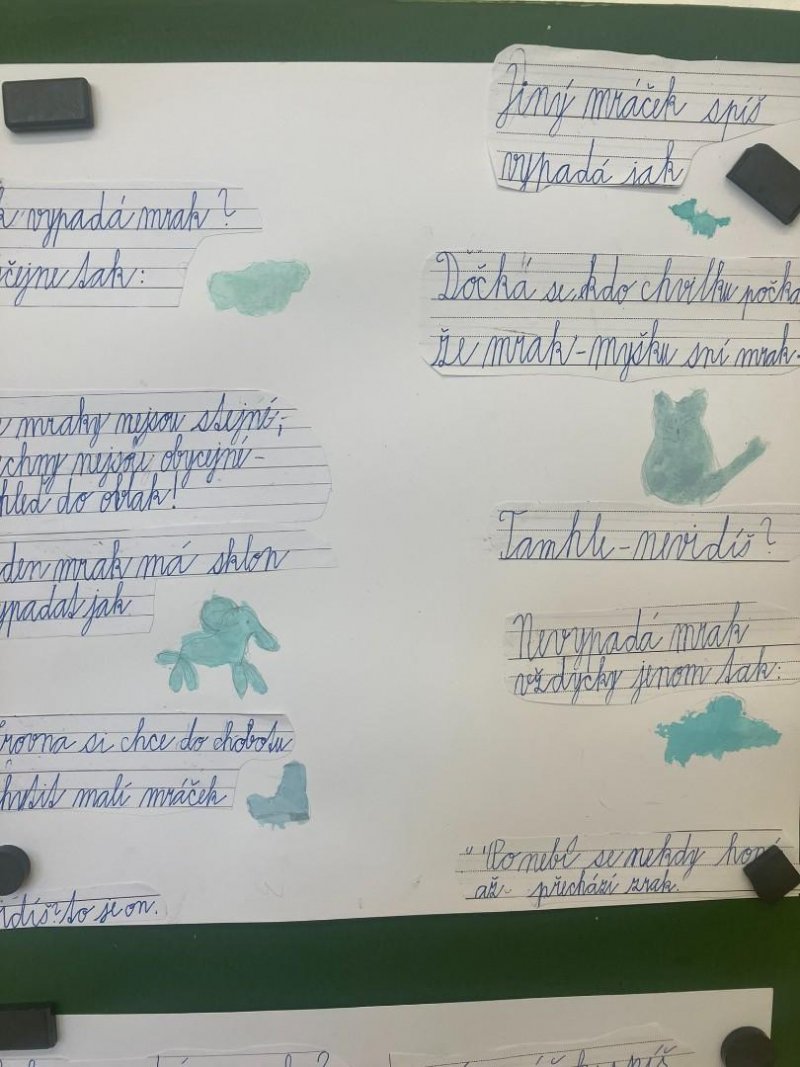 k vypadá mrak?
čejne tak:
mraky nejsou stejní,
chny nejsou obycejní-
hleď do oblak!
den mrak má sklon
ypadat jak
rovna si chce do chobotu
hytit malí mráček
idíš? to je on.
Jiný mráček spíš
vypadá jak
Dočká se kdo chvilku počka
že mrak-myšku sní mrak-
Tamhle-nevidíš?
Nevypadá mrak
vždycky jenom tak:
Po nebi se nekdy honí
až přechází zrak.